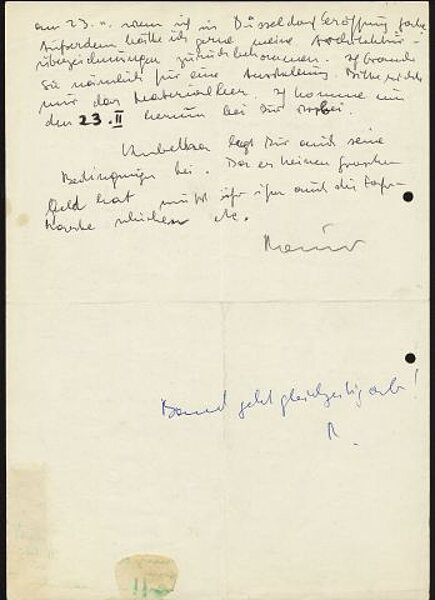 am 23. II. wenn ich in Düsseldorf Eröffnung habe
Außerdem hätte ich gerne meine Architektur-
überzeichnungen zurückbekommen. Ich brauche
sie nämlich für eine Ausstellung. Bitte richte
mir das Material her. Ich komme am
den 23. II herum bei Dir vorbei.
legt Dir auch seine
Bedingungen bei. Da er keinen Groschen
Geld hat müßt ihr ihm auch die Fahr-
karte schicken etc.
Rainer
Band geht gleichzeitig ab!
R.